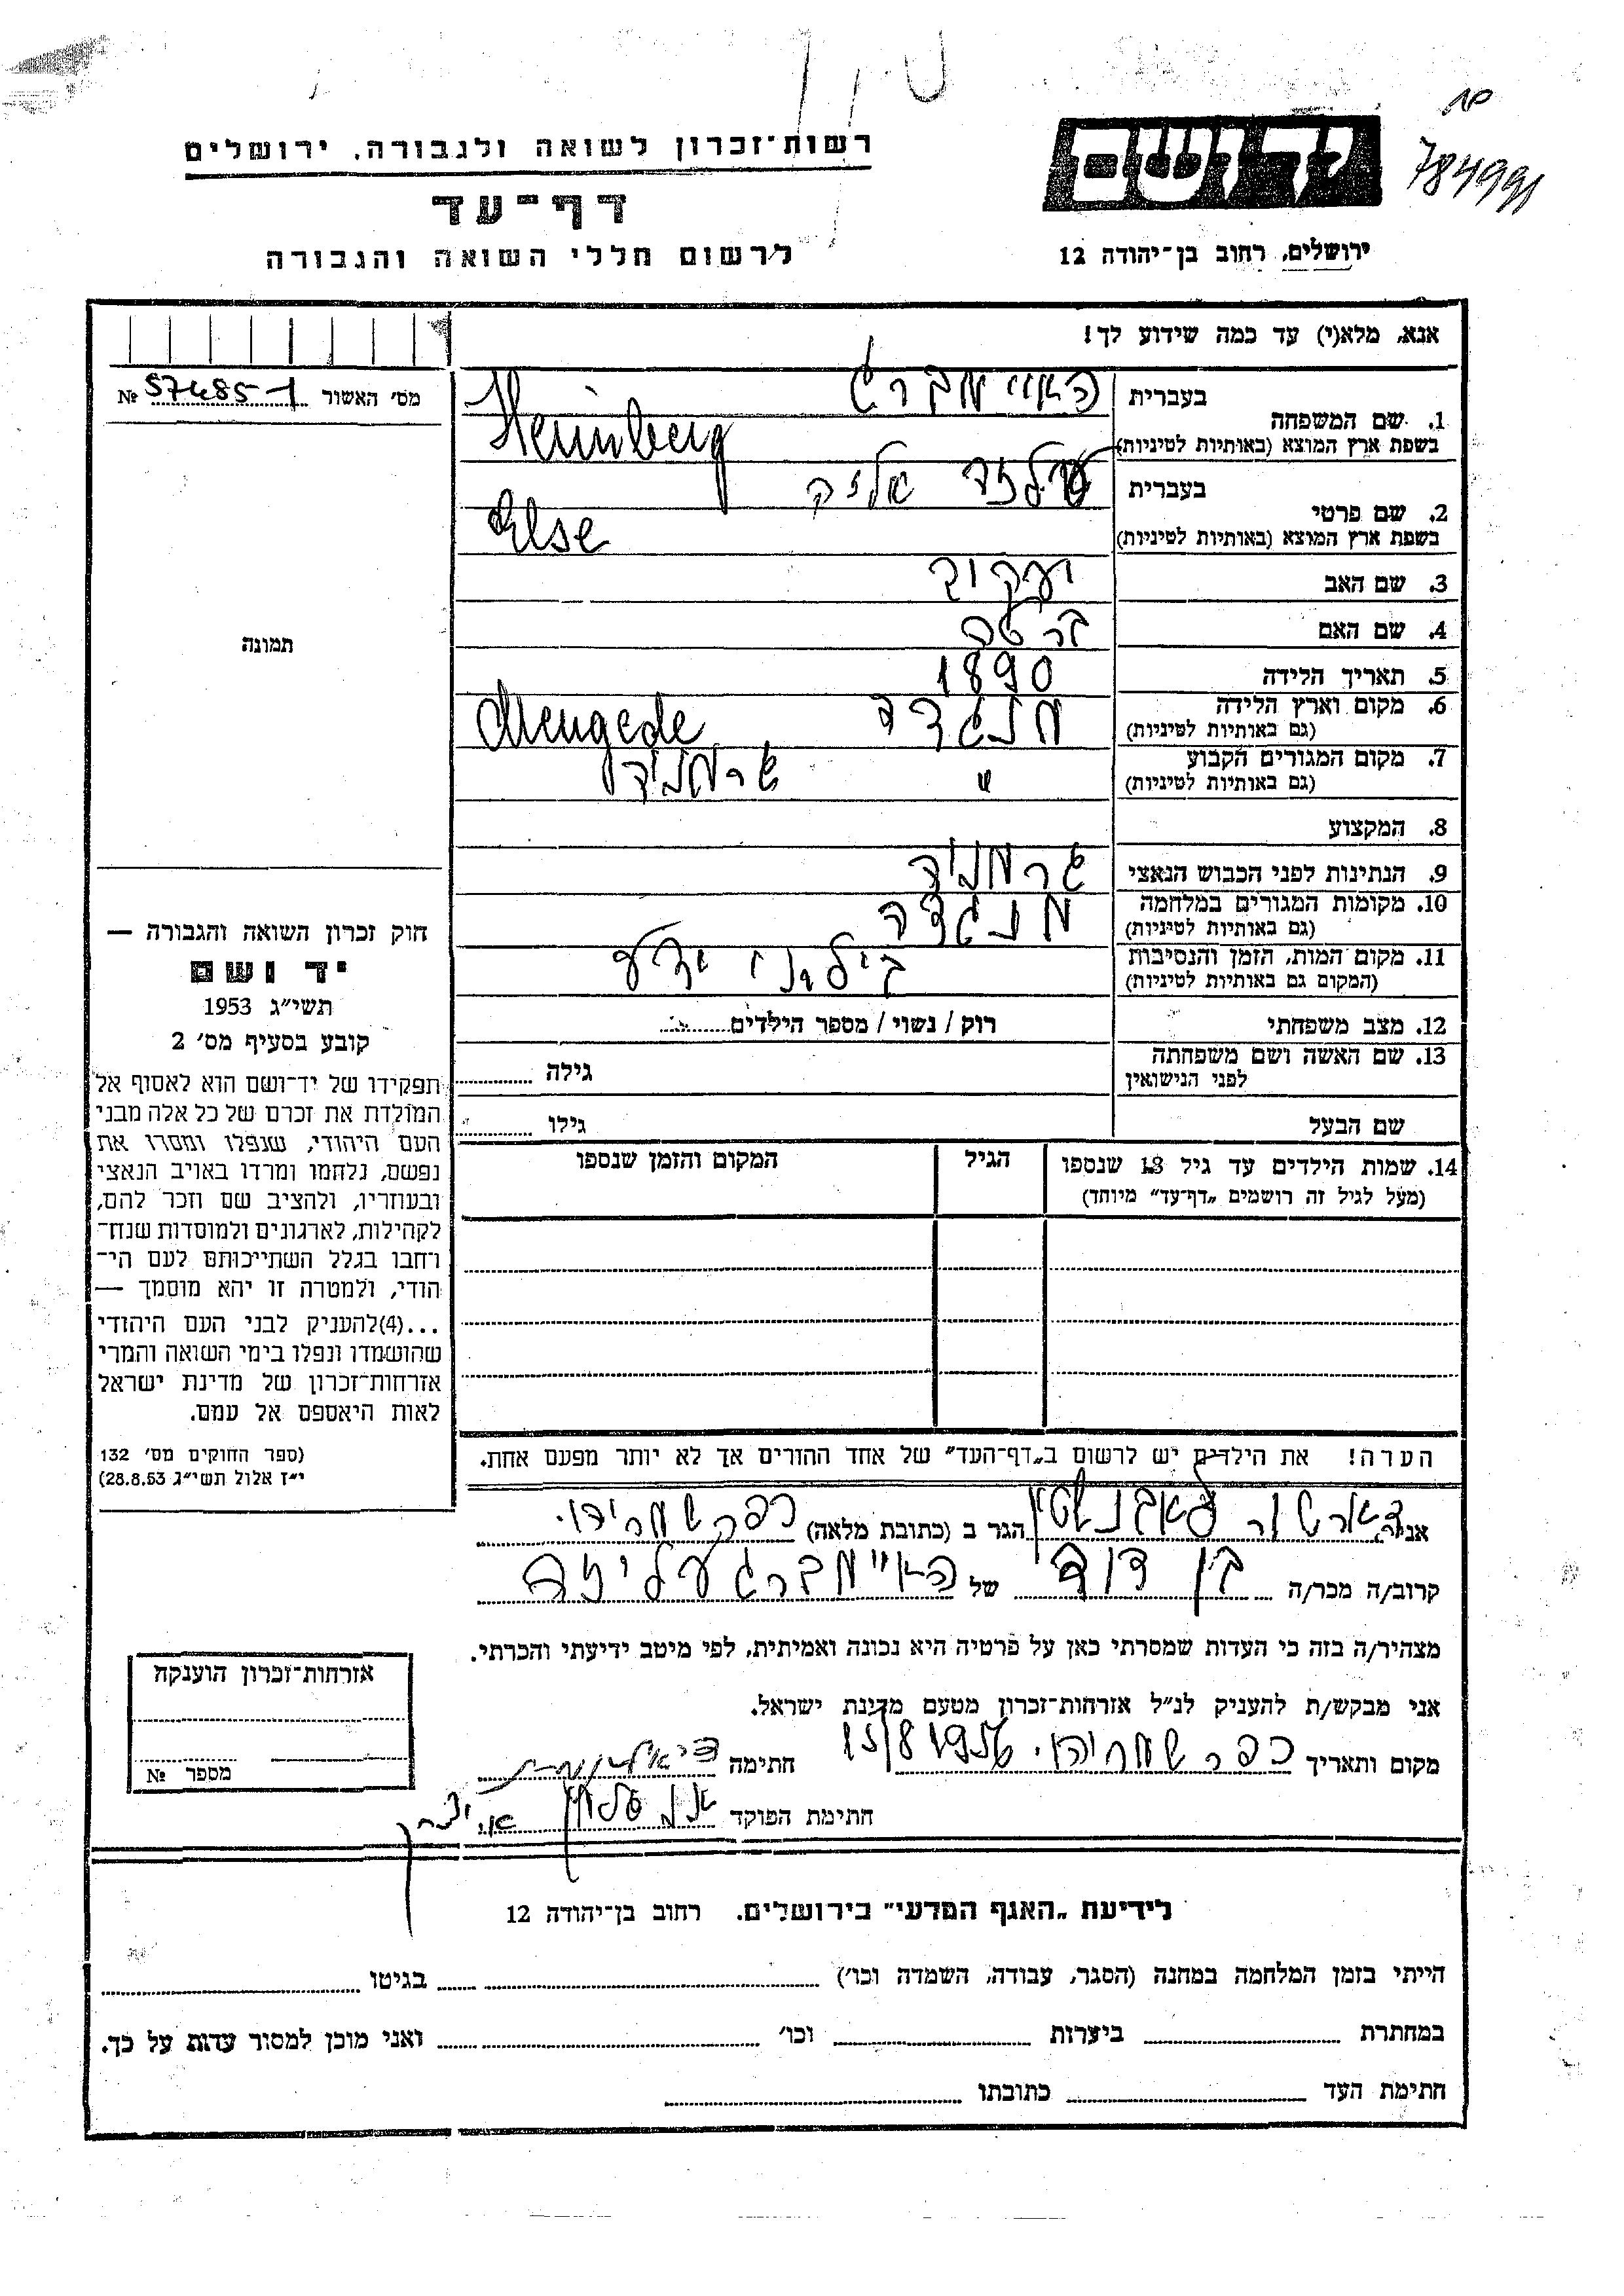 רשות־זכרון לשואה ולגבורה, ירושלים
דף־עד
לרשום חללי השואה והגבורה
ידושם
784991
ירושלים, רחוב בן־יהודה 12
אנא, מלא(י) עד כמה שידוע לך!
מס׳ האשור № 57485
תמונה
בעברית האיימברג
1. שם המשפחה
בשפת ארץ המוצא (באותיות לטיניות) Heimberg
בעברית
2. שם פרטי
בשפת ארץ המוצא (באותיות לטיניות) Else
3. שם האב יעקוב
4. שם האם ברטה
5. תאריך הלידה 1890
6. מקום וארץ הלידה מנגדה Mengede
(גם באותיות לטיניות)
7. מקום המגורים הקבוע " גרמניה
(גם באותיות לטיניות)
8. המקצוע
9. הנתינות לפני הכבוש הנאצי גרמניה
10. מקומות המגורים במלחמה מנגדה
(גם באותיות לטיניות)
11. מקום המות, הזמן והנסיבות בילתי ידוע
(המקום גם באותיות לטיניות)
12. מצב משפחתי רוק / נשוי / מספר הילדים
13. שם האשה ושם משפחתה גילה
לפני הנישואין
שם הבעל גילו
14. שמות הילדים עד גיל 18 שנספו הגיל המקום והזמן שנספו
(מעל לגיל זה רושמים „דף־עד” מיוחד)
הערה! את הילדים יש לרשום ב„דף־העד” של אחד ההורים אך לא יותר מפעם אחת.
חוק זכרון השואה והגבורה —
יד ושם
תשי״ג 1953
קובע בסעיף מס׳ 2
תפקידו של יד־ושם הוא לאסוף אל
המולדת את זכרם של כל אלה מבני
העם היהודי, שנפלו ומסרו את
נפשם, נלחמו ומרדו באויב הנאצי
ובעוזריו, ולהציב שם וזכר להם,
לקהילות, לארגונים ולמוסדות שנח־
רחבו בגלל השתייכותם לעם הי־
הודי, ולמטרה זו יהא מוסמך —
...(4)להעניק לבני העם היהודי
שהושמדו ונפלו בימי השואה והמרי
אזרחות־זכרון של מדינת ישראל
לאות היאספם אל עמם.
(ספר החוקים מס׳ 132
י״ז אלול תשי״ג 28.8.53)
אני הגר ב (כתובת מלאה) כפר שמריהו.
קרוב/ה מכר/ה בן דוד של האיימברג
מצהיר/ה בזה כי העדות שמסרתי כאן על פרטיה היא נכונה ואמיתית, לפי מיטב ידיעתי והכרתי.
אני מבקש/ת להעניק לנ״ל אזרחות־זכרון מטעם מדינת ישראל.
מקום ותאריך כפר שמריהו. 15/8 1956 חתימה
חתימת הפוקד
אזרחות־זכרון הוענקה
מספר №
לידיעת „האגף המדעי” בירושלים. רחוב בן־יהודה 12
הייתי בזמן המלחמה במחנה (הסגר, עבודה, השמדה וכו׳) בגיטו
במחתרת ביערות וכו׳ ואני מוכן למסור עדות על כך.
חתימת העד כתובתו